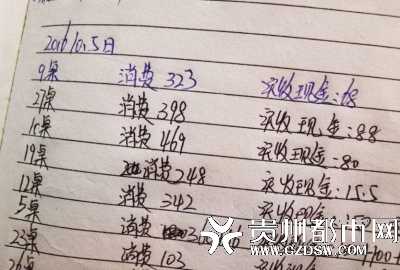 2016/10.5日
9桌 消费 323 实收现金:68
27桌 消费 398 实收现金:88
消费 469 实收现金:80
19桌 消费 248 实收现金:15.5
12桌 消费 342 实收现金
5桌 消费
23桌 消费 103
贵州都市网
WWW.GZDSW.COM